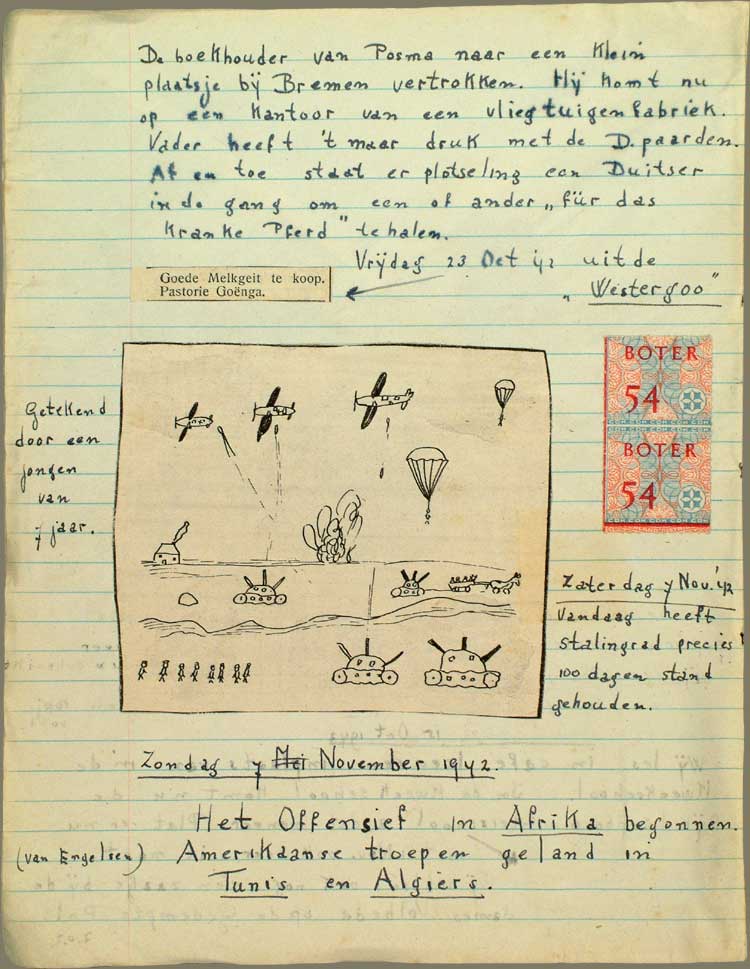 De boekhouder van Posma naar een klein
plaatsje bij Bremen vertrokken. Hij komt nu
op een kantoor van een vliegtuigenfabriek.
Vader heeft 't maar druk met de D. paarden.
Af en toe staat er plotseling een Duitser
in de gang om een of ander „für das
Kranke Pferd" te halen.
Vrijdag 23 Oct '42 uit de
„Westergoo"
Goede Melkgeit te koop.
Pastorie Goënga.
BOTER
54
BOTER
54
Getekend
door een
jongen
van
7 jaar.
Zaterdag 7 Nov. '42
Vandaag heeft
Stalingrad precies
100 dagen stand
gehouden.
Zondag 7 Mei November 1942.
Het Offensief in Afrika begonnen.
(van Engelsen) Amerikaanse troepen geland in
Tunis en Algiers.